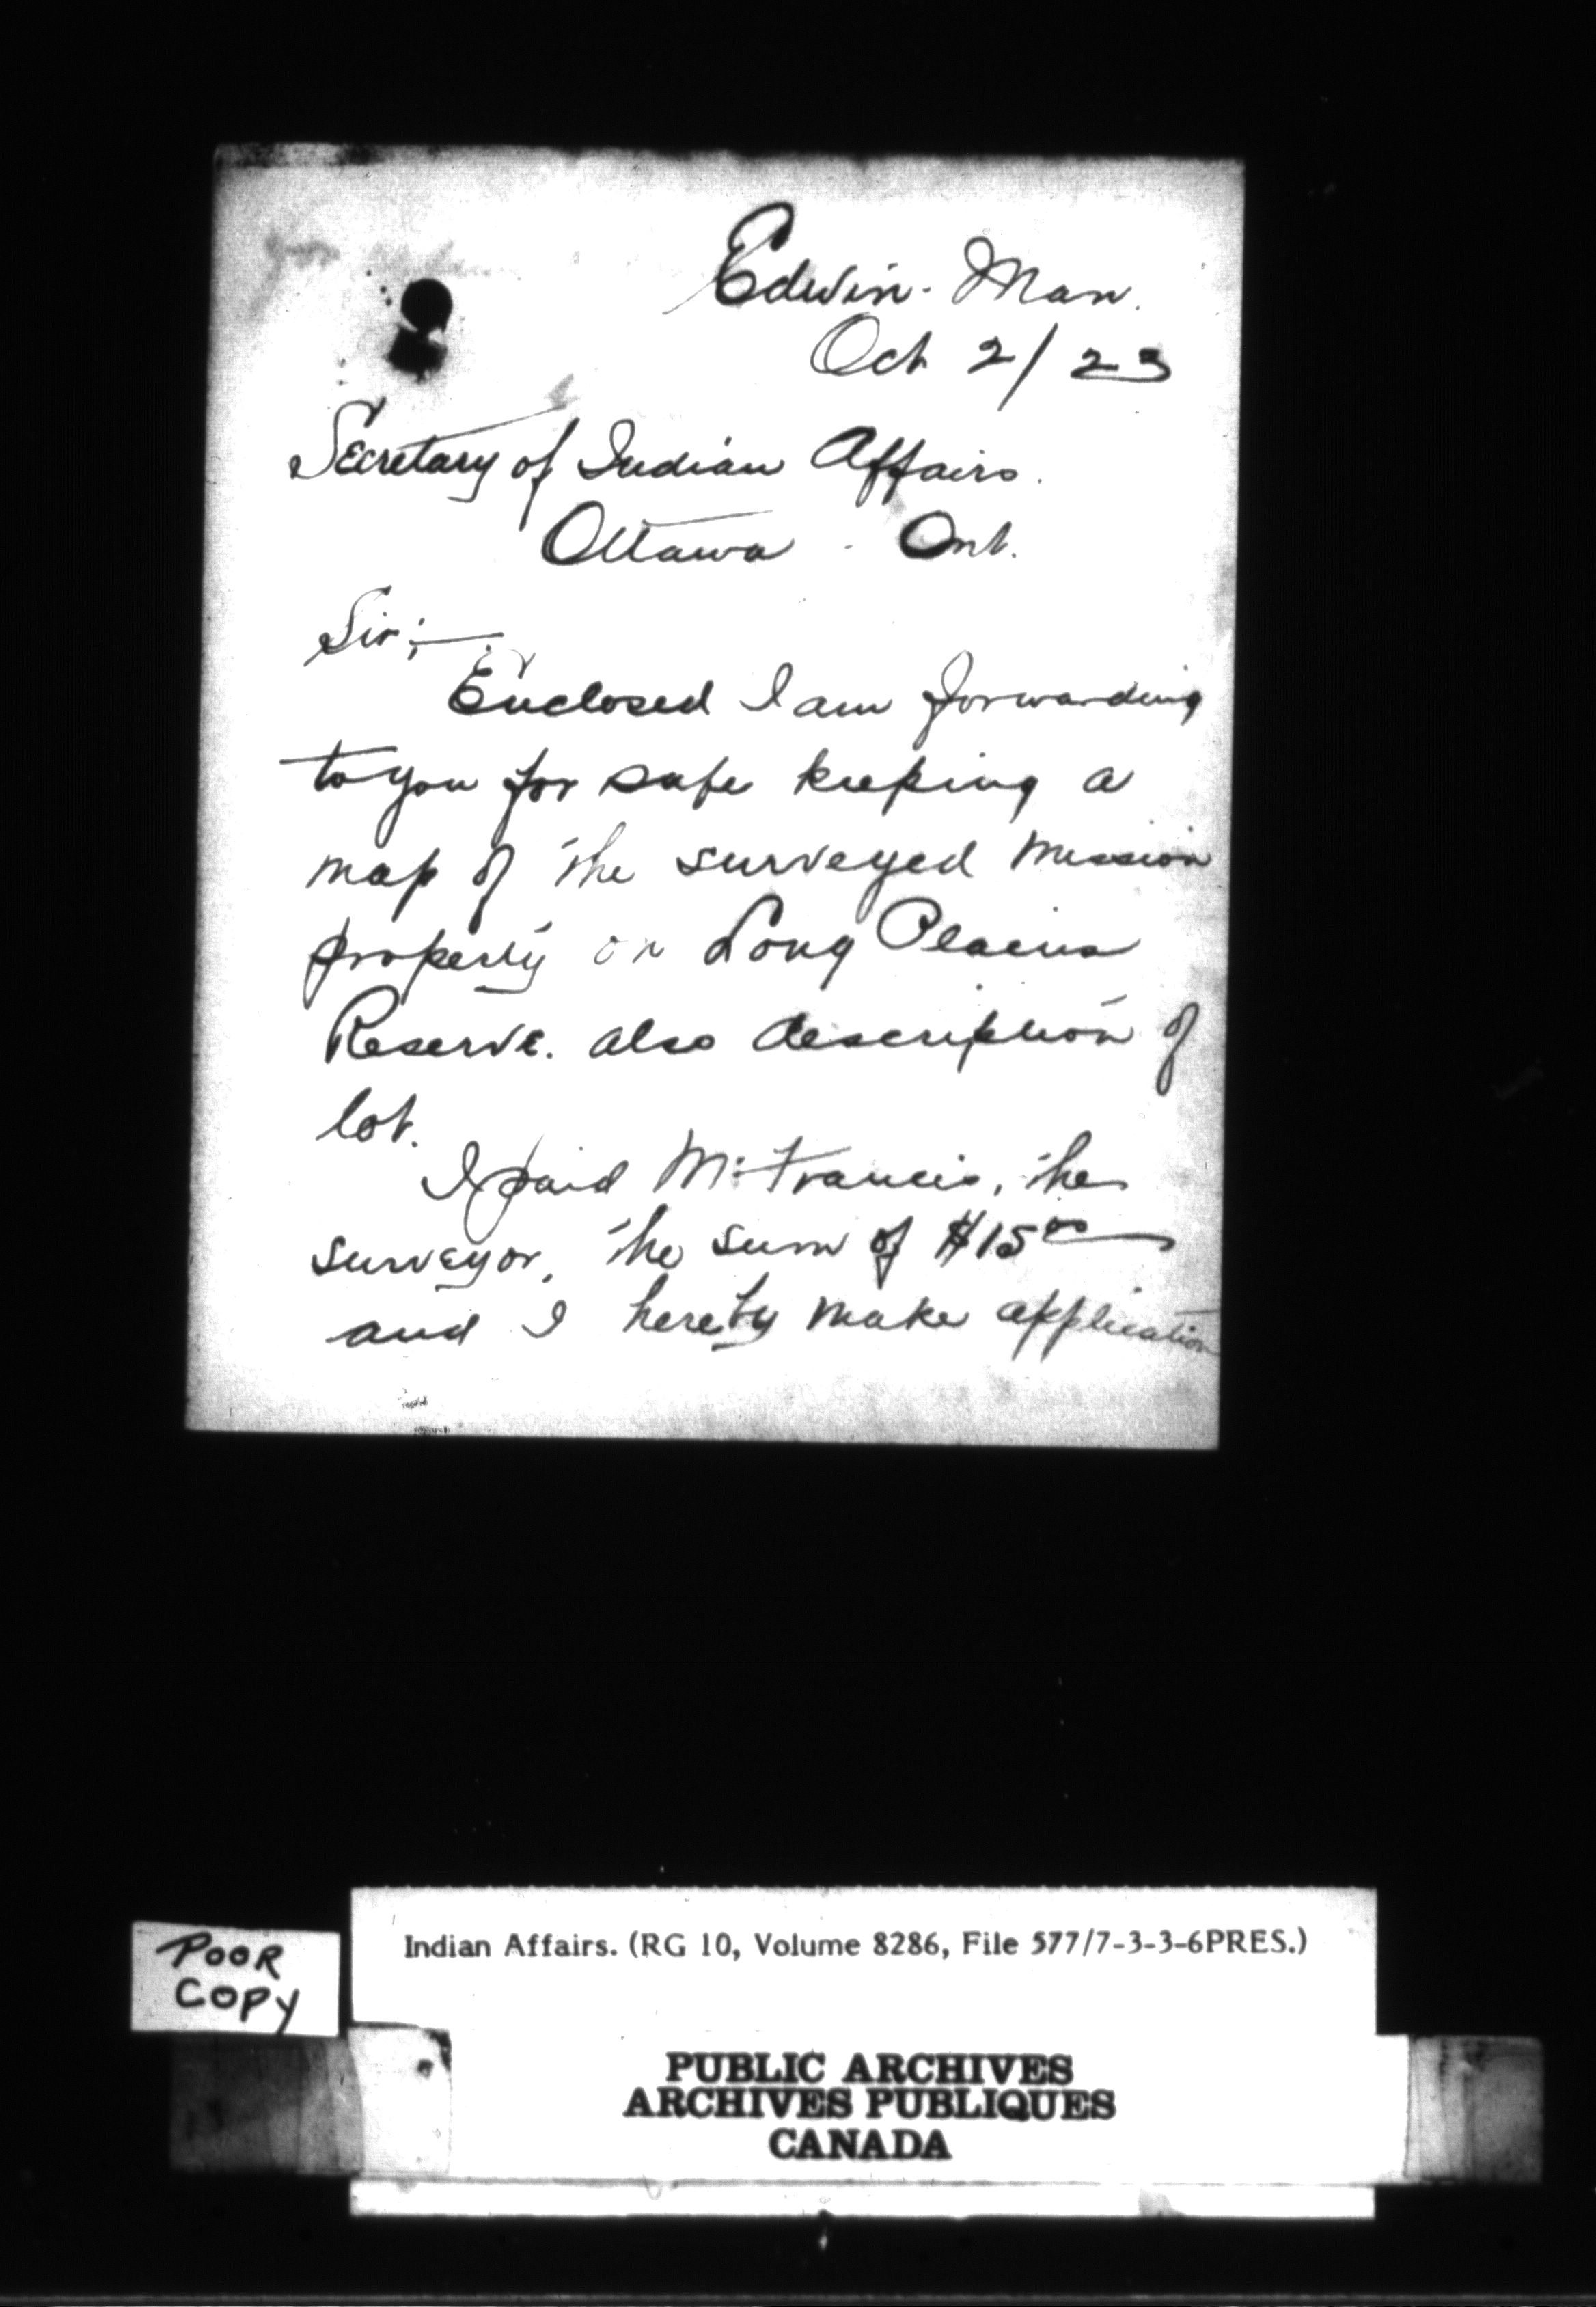 Edwin. Man.
Oct 2/23
Secretary of Indian Affairs.
Ottawa. Ont.
Sir:—
Enclosed I am forwarding
to you for safe keeping a
map of the surveyed mission
property on Long Plains
Reserve. also description of
lot.
I paid Mr. Francis, the
surveyor, the sum of $15.00
and I hereby make application
POOR
COPY
Indian Affairs. (RG 10, Volume 8286, File 577/7-3-3-6PRES.)
PUBLIC ARCHIVES
ARCHIVES PUBLIQUES
CANADA